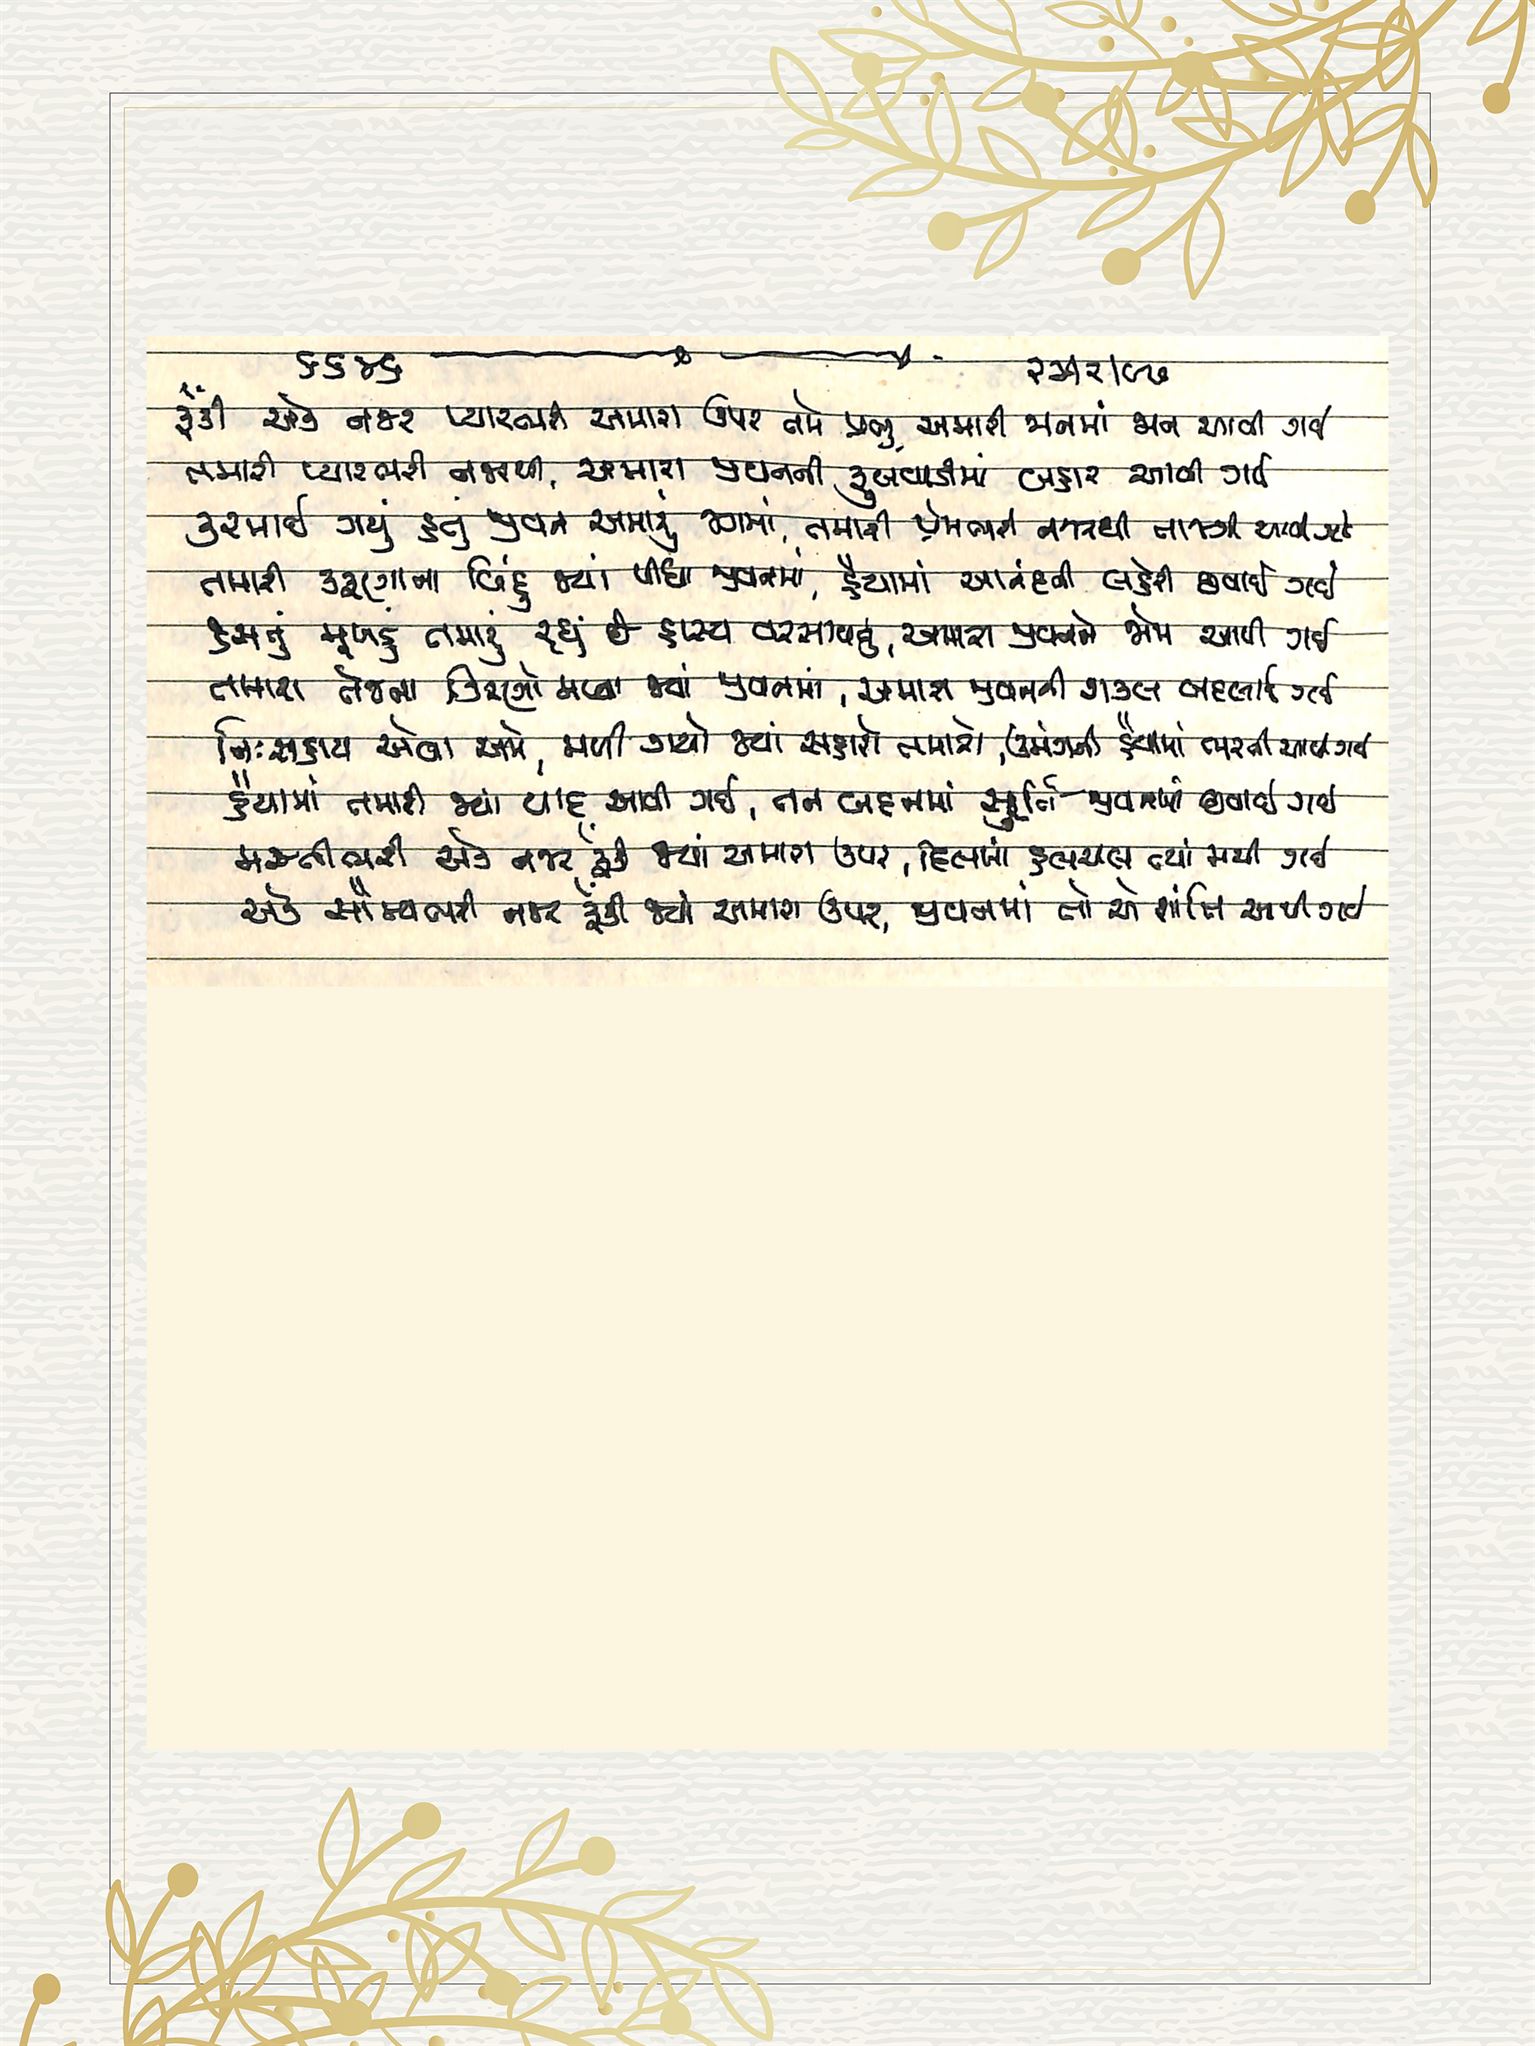 ૬૬૪૬
ફેંકી એક નજર પ્યારભરી અમારા ઉપર તમે પ્રભુ, અમારી જાનમાં જાન આવી ગઈ
તમારી પ્યારભરી નજરથી, અમારા જીવનની ફુલવાડીમાં બહાર આવી ગઈ
કરમાઈ ગયું હતું જીવન અમારું જગમાં, તમારી પ્રેમભરી નજરથી તાજગી આવી ગઈ
તમારી કરુણાના બિંદુ જ્યાં પીધા જીવનમાં, હૈયામાં આનંદની લહેરી છવાઈ ગઈ
હસતું મુખડું તમારું રહ્યું છે હાસ્ય વરસાવતું, અમારા જીવનને જોમ આપી ગઈ
તમારા તેજના કિરણો મળ્યા જ્યાં જીવનમાં, અમારા જીવનની શકલ બદલાઈ ગઈ
નિઃસહાય એવા અમે, મળી ગયો જ્યાં સહારો તમારો, ઉમંગની હૈયામાં ભરતી આવી ગઈ
હૈયામાં તમારી જ્યાં યાદ આવી ગઈ, તન બદનમાં સ્ફૂર્તિ જીવનમાં છવાઈ ગઈ
મસ્તીભરી એક નજર ફેંકી જ્યાં અમારા ઉપર, દિલમાં હલચલ ત્યાં મચી ગઈ
એક સૌમ્યભરી નજર ફેંકી જ્યાં અમારા ઉપર, જીવનમાં તો એ શાંતિ આપી ગઈ